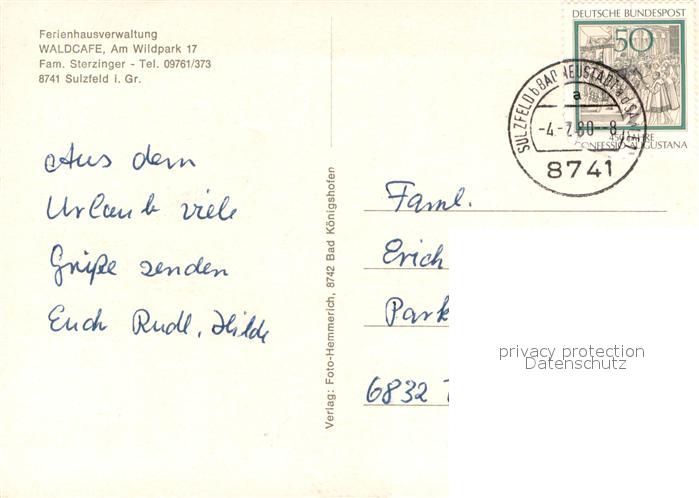 Ferienhausverwaltung
WALDCAFE, Am Wildpark 17
Fam. Sterzinger - Tel. 09761/373
8741 Sulzfeld i. Gr.
DEUTSCHE BUNDESPOST
50
450 JAHRE
CONFESSIO AUGUSTANA
SULZFELD b BAD NEUSTADT a d SAALE
a
-4.-7.80--8
8741
Aus dem
Urlaub viele
Grüße senden
Euch Rudi, Hilde
Verlag: Foto-Hemmerich, 8742 Bad Königshofen
Faml.
Erich
Park
6832
privacy protection
Datenschutz